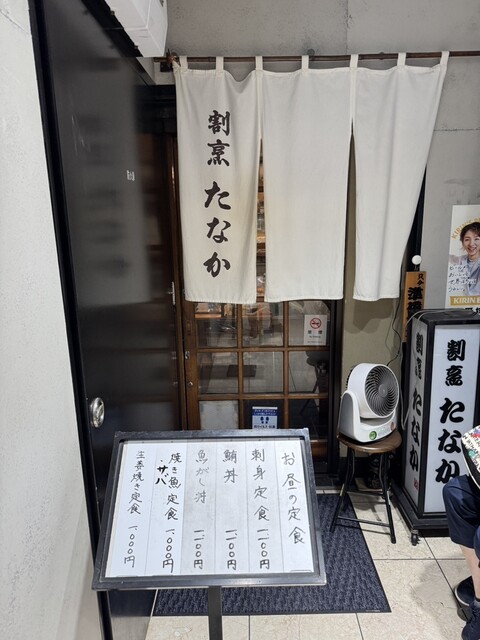 割烹 たなか
割烹 たなか
割烹 たなか
お昼の定食
刺身定食 一、一〇〇円
鮪丼 一、一〇〇円
魚がし丼 一、一〇〇円
焼き魚定食 一、〇〇〇円
・サバ
生姜焼き定食 一、〇〇〇円
KIRIN